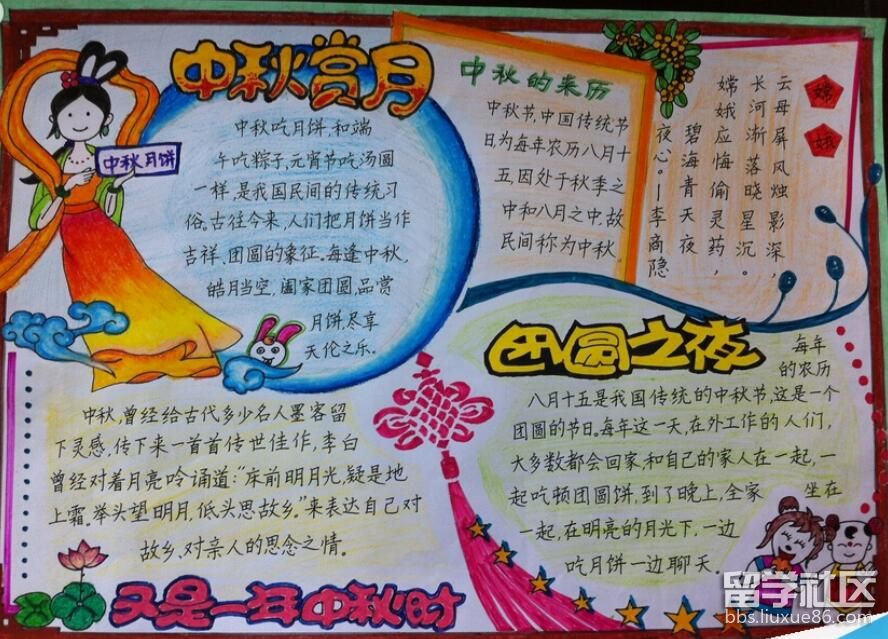 中秋赏月
中秋月饼
中秋吃月饼,和端
午吃粽子,元宵节吃汤圆
一样,是我国民间的传统习
俗。古往今来,人们把月饼当作
吉祥、团圆的象征。每逢中秋,
皓月当空,阖家团圆,品赏
月饼,尽享
天伦之乐。
中秋的来历
中秋节,中国传统节
日为每年农历八月十
五,因处于秋季之
中和八月之中,故
民间称为中秋
嫦
娥
云母屏风烛影深,
长河渐落晓星沉。
嫦娥应悔偷灵药,
碧海青天夜
夜心。—李商隐
团圆之夜
每年
的农历
八月十五是我国传统的中秋节,这是一个
团圆的节日。每年这一天,在外工作的人们,
大多数都会回家,和自己的家人在一起,一
起吃顿团圆饼,到了晚上,全家 坐在
一起,在明亮的月光下,一边
吃月饼一边聊天。
中秋,曾经给古代多少名人墨客留
下灵感,传下来一首首传世佳作,李白
曾经对着月亮吟诵道:“床前明月光,疑是地
上霜。举头望明月,低头思故乡。”来表达自己对
故乡、对亲人的思念之情。
又是一年中秋时
留学社区
bbs.liuxue86.com